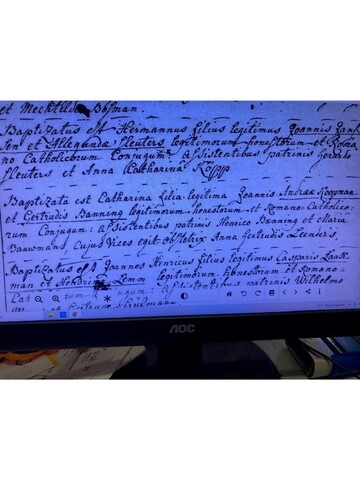 et Mechtildis Bosman.
Baptizatus est Hermannus filius legitimus Joannis Jans
sen et Allegondæ Sleuters legitimorum honestorum et Roma
no Catholicorum Conjugum assistentibus patrinis Gerardo
Sleuters et Anna Catharina
Baptizata est Catharina filia legitima Joannis Andreæ Koopman
et Gertrudis Banning legitimorum honestorum et Romano-Catholico-
rum Conjugum: assistentibus patrinis Henrico Banning et Maria
Bausmans, Cujus Vices egit obstetrix Anna Gertrudis Leenders
Baptizatus est Joannes Henricus filius legitimus Casparis
man et legitimorum honestorum et Romano-
assistentibus patrinis Wilhelmo
AOC